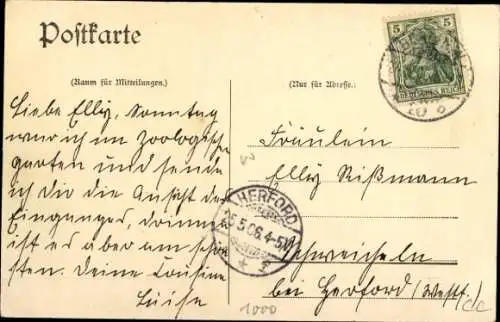 Postkarte
(Raum für Mitteilungen.)
(Nur für Adresse.)
5 5
DEUTSCHES REICH
Liebe Elly, Sonntag
war ich im Zoologisch
garten und sende
ich Dir die Ansicht des
Einganges, drinnen
ist es aber am schön
sten. Deine Cousine
Luise
Fräulein
Elly Rißmann
Schweicheln
bei Herford (Westf.)
HERFORD
25.5.06.4-5N
1000